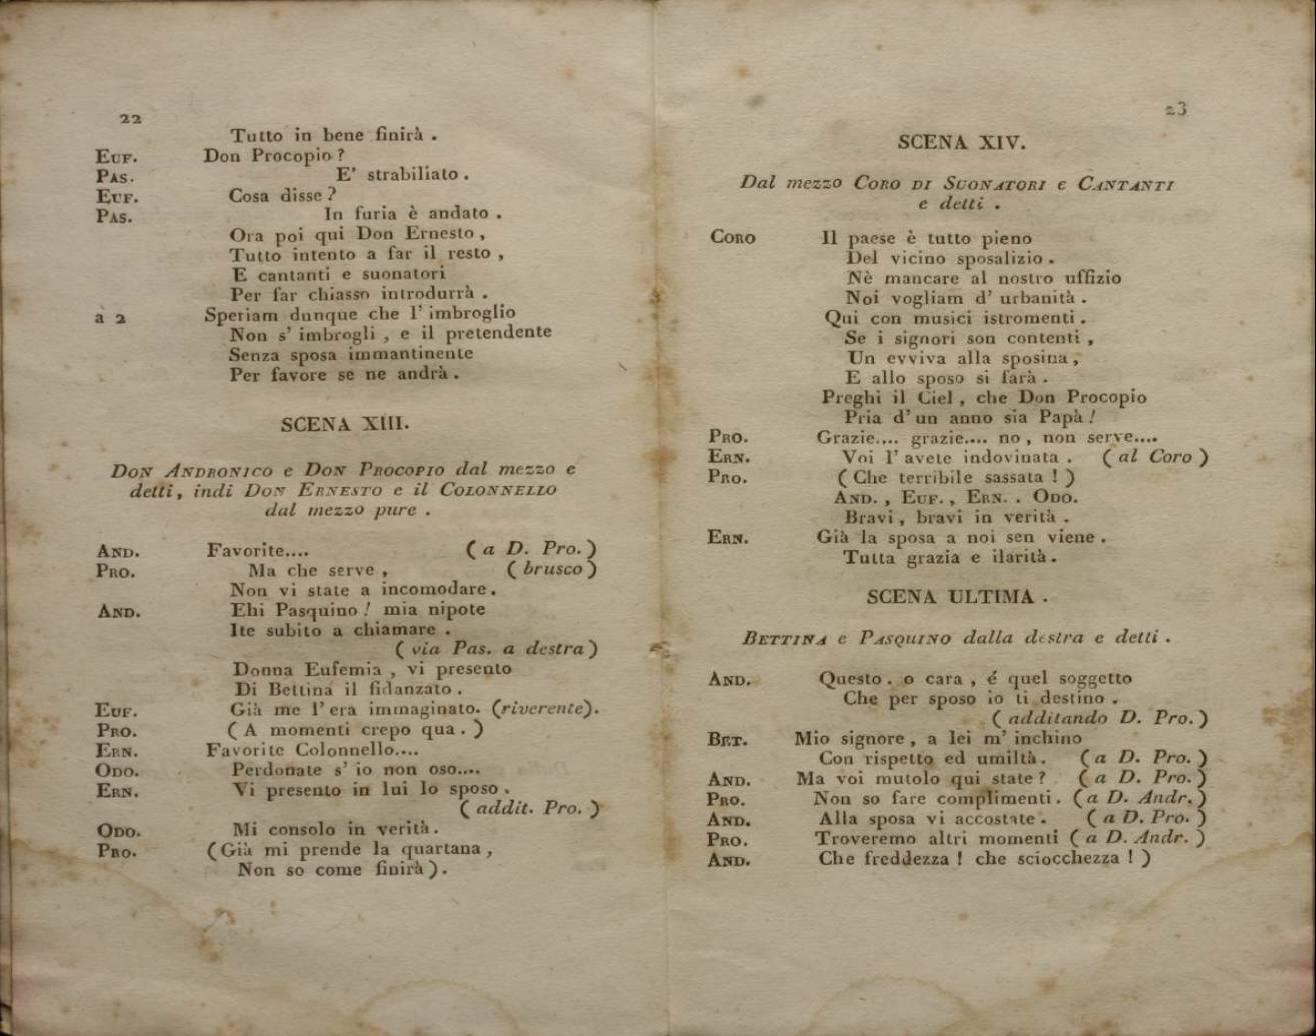 22
Tutto in bene finirà .
EUF. Don Procopio ?
PAS. E' strabiliato .
EUF. Cosa disse ?
PAS. In furia è andato .
Ora poi qui Don Ernesto ,
Tutto intento a far il resto ,
E cantanti e suonatori
Per far chiasso introdurrà .
à 2 Speriam dunque che l' imbroglio
Non s' imbrogli , e il pretendente
Senza sposa immantinente
Per favore se ne andrà .
SCENA XIII.
DON ANDRONICO e DON PROCOPIO dal mezzo e
detti, indi DON ERNESTO e il COLONNELLO
dal mezzo pure .
AND. Favorite.... ( a D. Pro. )
PRO. Ma che serve , ( brusco )
Non vi state a incomodare.
AND. Ehi Pasquino ! mia nipote
Ite subito a chiamare .
( via Pas. a destra )
Donna Eufemia , vi presento
Di Bettina il fidanzato .
EUF. Già me l' era immaginato. (riverente).
PRO. ( A momenti crepo qua . )
ERN. Favorite Colonnello....
ODO. Perdonate s' io non oso....
ERN. Vi presento in lui lo sposo .
( addit. Pro. )
ODO. Mi consolo in verità.
PRO. (Già mi prende la quartana ,
Non so come finirà ).
23
SCENA XIV.
Dal mezzo CORO DI SUONATORI e CANTANTI
e detti .
CORO Il paese è tutto pieno
Del vicino sposalizio .
Nè mancare al nostro uffizio
Noi vogliam d' urbanità .
Qui con musici istromenti .
Se i signori son contenti ,
Un evviva alla sposina ,
E allo sposo si farà .
Preghi il Ciel , che Don Procopio
Pria d' un anno sia Papà !
PRO. Grazie.... grazie.... no , non serve....
ERN. Voi l' avete indovinata . ( al Coro )
PRO. ( Che terribile sassata ! )
AND. , EUF. , ERN. . ODO.
Bravi , bravi in verità .
ERN. Già la sposa a noi sen viene .
Tutta grazia e ilarità .
SCENA ULTIMA .
BETTINA e PASQUINO dalla destra e detti .
AND. Questo . o cara , é quel soggetto
Che per sposo io ti destino .
( additando D. Pro. )
BET. Mio signore , a lei m' inchino
Con rispetto ed umiltà. ( a D. Pro. )
AND. Ma voi mutolo qui state ? ( a D. Pro. )
PRO. Non so fare complimenti. ( a D. Andr. )
AND. Alla sposa vi accostate . ( a D. Pro. )
PRO. Troveremo altri momenti ( a D. Andr. )
AND. Che freddezza ! che sciocchezza ! )